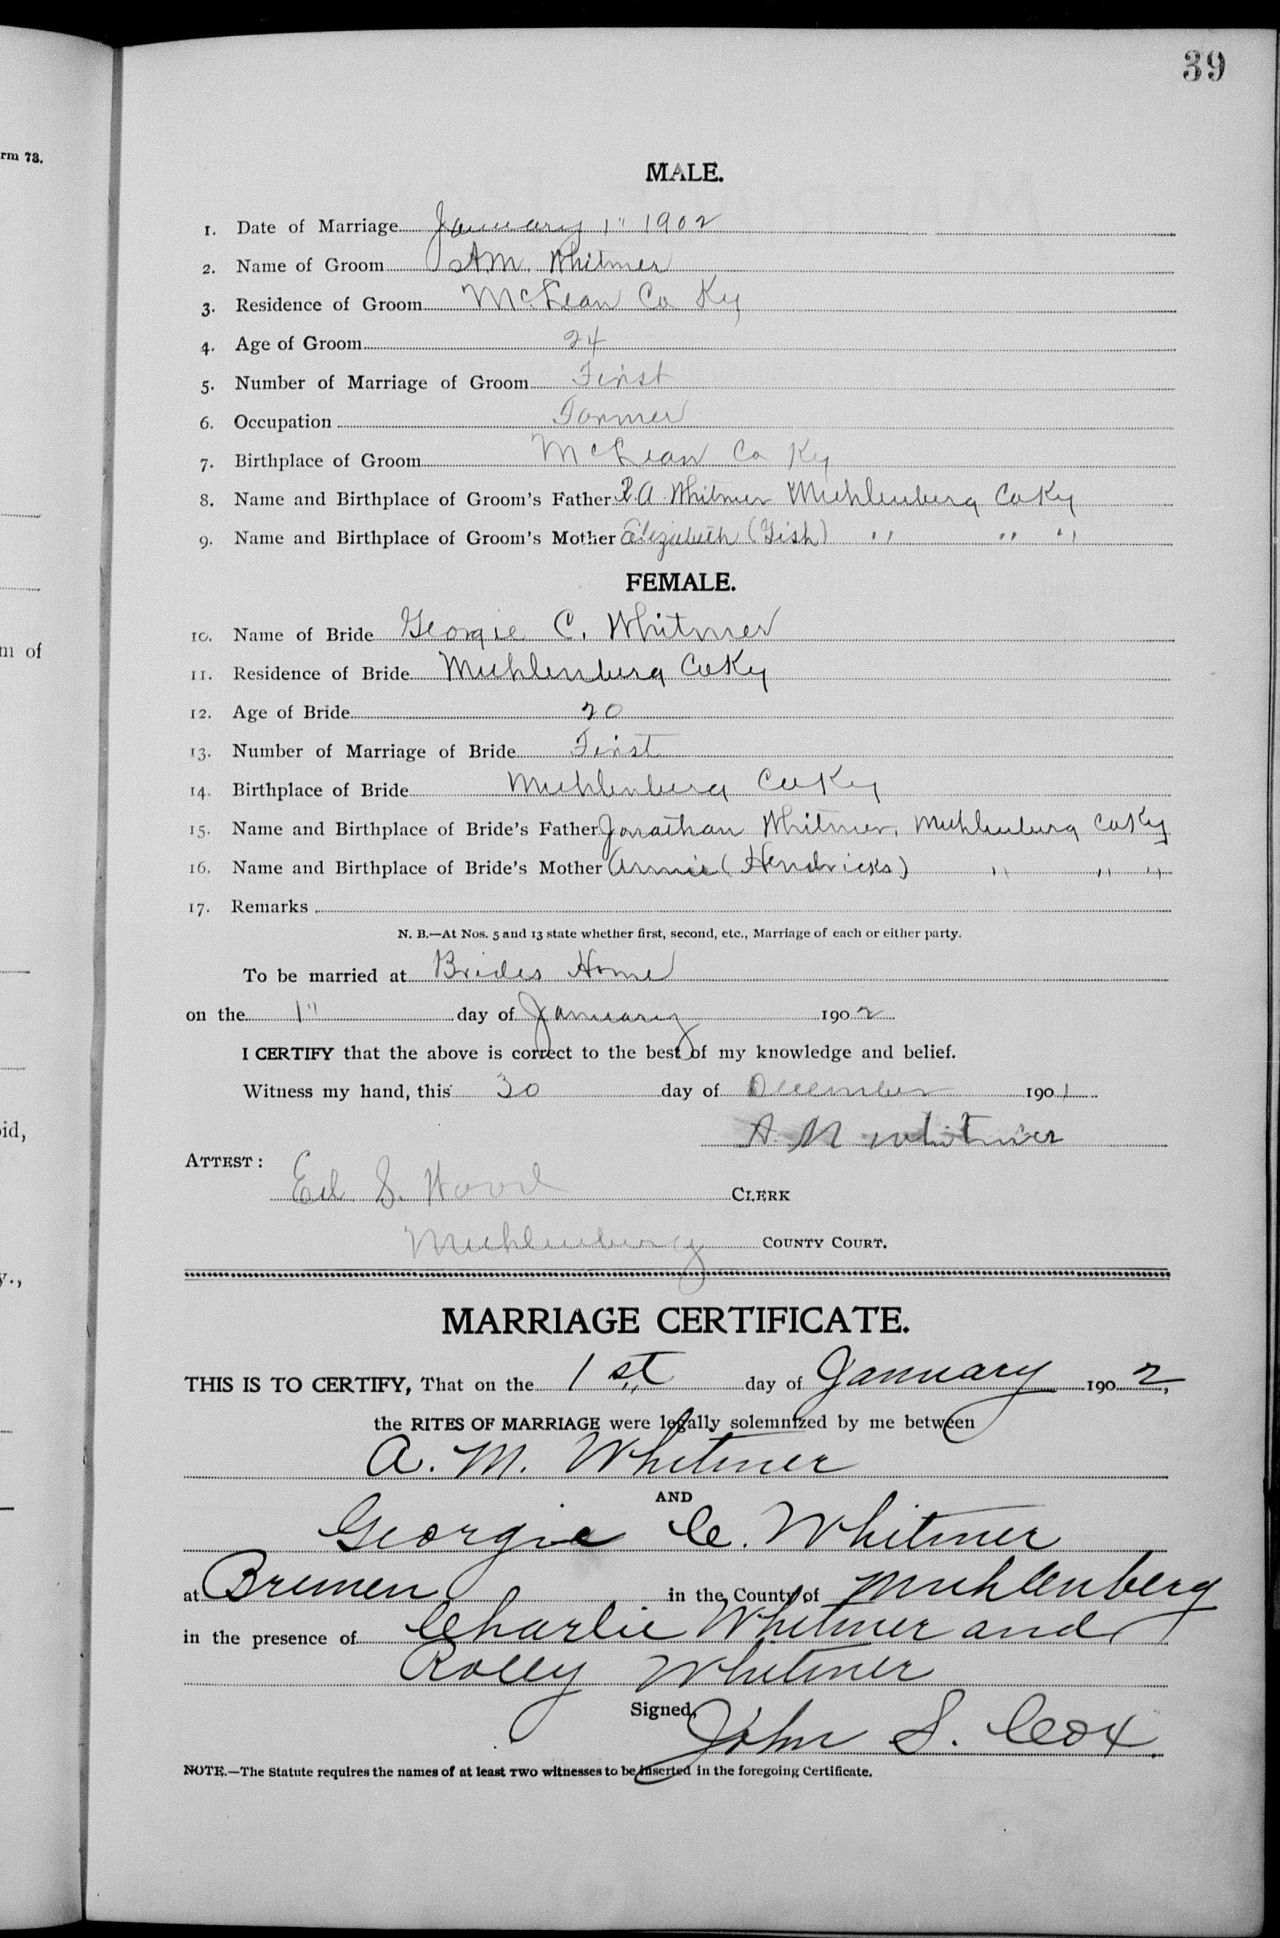 39
rm 73.
MALE.
1. Date of Marriage January 1" 1902
2. Name of Groom AM. Whitmer
3. Residence of Groom McLean Co Ky
4. Age of Groom 24
5. Number of Marriage of Groom First
6. Occupation Farmer
7. Birthplace of Groom McLean Co Ky
8. Name and Birthplace of Groom's Father A Whitmer Muhlenberg Co Ky
9. Name and Birthplace of Groom's Mother Elizabeth (Gish) " " "
FEMALE.
10. Name of Bride Georgie C. Whitmer
m of
11. Residence of Bride Muhlenberg Co Ky
12. Age of Bride 20
13. Number of Marriage of Bride First
14. Birthplace of Bride Muhlenberg Co Ky
15. Name and Birthplace of Bride's Father Jonathan Whitmer, Muhlenberg Co Ky
16. Name and Birthplace of Bride's Mother Annie (Hendricks) " " "
17. Remarks
N. B.—At Nos. 5 and 13 state whether first, second, etc., Marriage of each or either party.
To be married at Brides Home
on the 1" day of January 1902
I CERTIFY that the above is correct to the best of my knowledge and belief.
Witness my hand, this 30 day of December 1901
oid,
A. M Whitmer
ATTEST:
Ed. S. Wood CLERK
Muhlenberg COUNTY COURT.
y.,
MARRIAGE CERTIFICATE.
THIS IS TO CERTIFY, That on the 1st day of January 1902,
the RITES OF MARRIAGE were legally solemnized by me between
A. M. Whitmer
AND
Georgie C. Whitmer
at Bremen in the County of Muhlenberg
in the presence of Charlie Whitmer and
Rolly Whitmer
Signed, John S. Cox.
NOTE.—The Statute requires the names of at least TWO witnesses to be inserted in the foregoing Certificate.